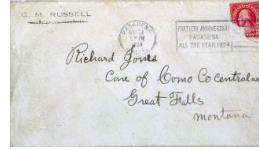 C. M. RUSSELL
PASADENA
FIFTIETH ANNIVERSARY
PASADENA
ALL THE YEAR 1924
Richard Jones
Care of Como Co centralave
Great Falls
Montana